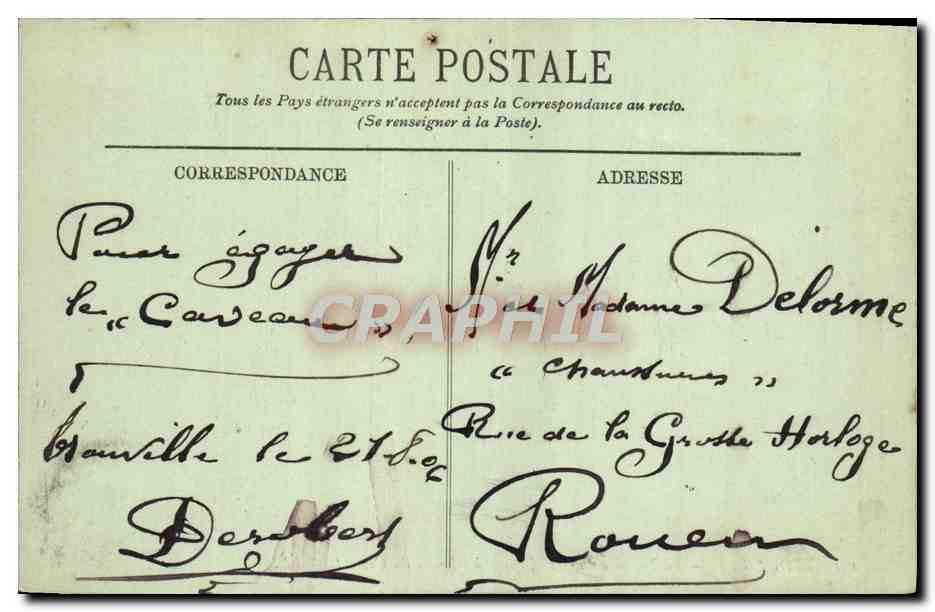 CARTE POSTALE
Tous les Pays étrangers n'acceptent pas la Correspondance au recto.
(Se renseigner à la Poste).
CORRESPONDANCE
Pour égayer
le "Caveau",
Trouville le 27.8.06
ADRESSE
Mr et Madame Delorme
"Chaussures"
Rue de la Grosse Horloge
Rouen
CRAPHIL